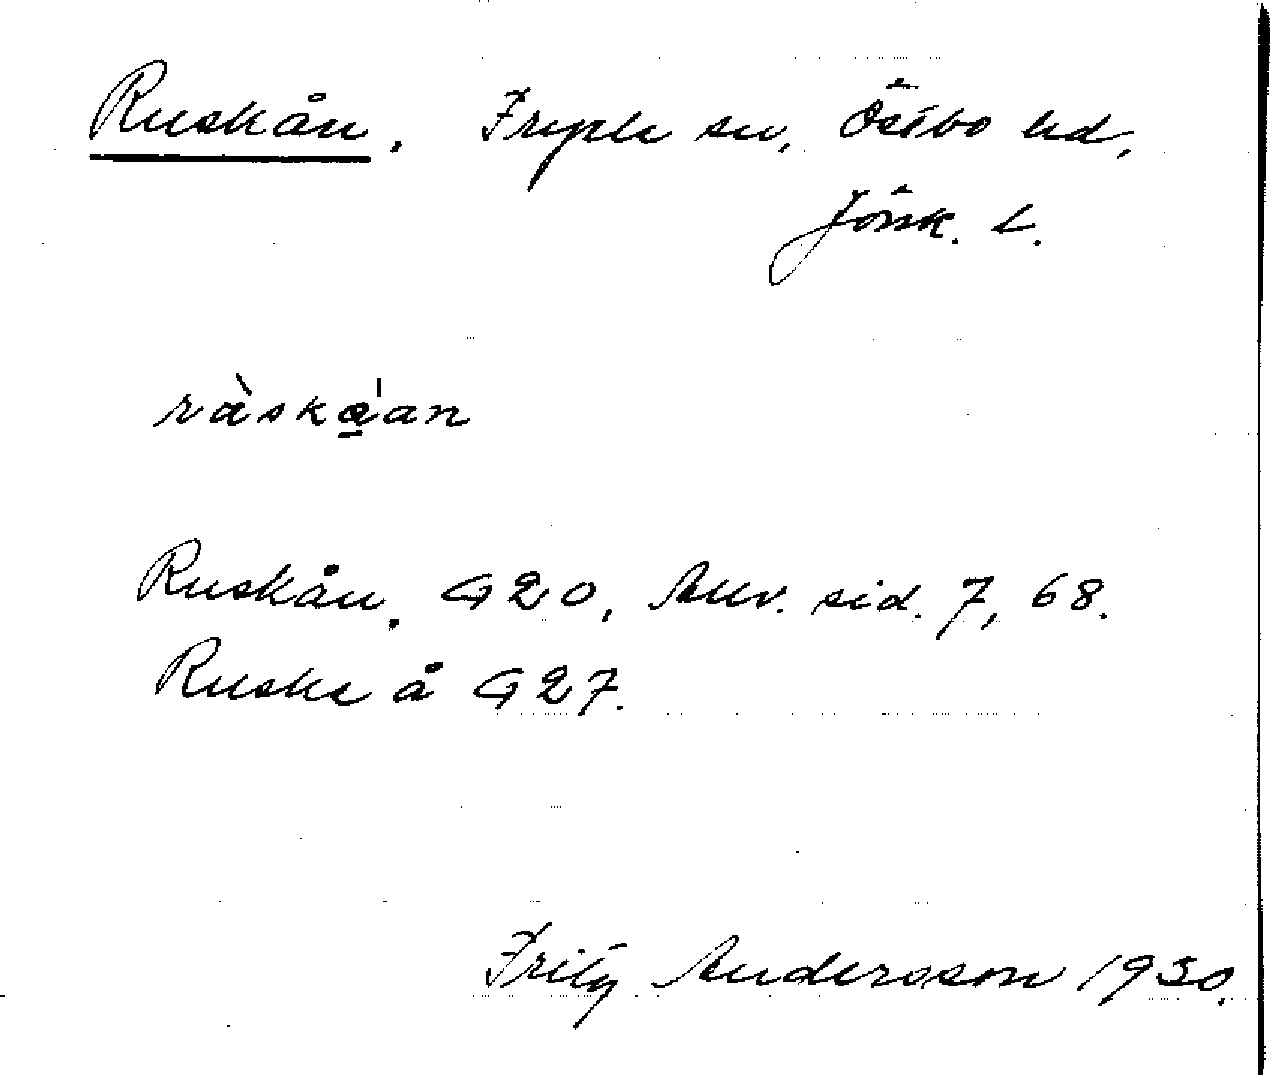 Ruskån. Fryele sn, Östbo hd,
Jönk. L.
ràskáan
Ruskån. G20, Anv. sid. 7, 68.
Ruska å G27.
Fritz Andersson 1930.